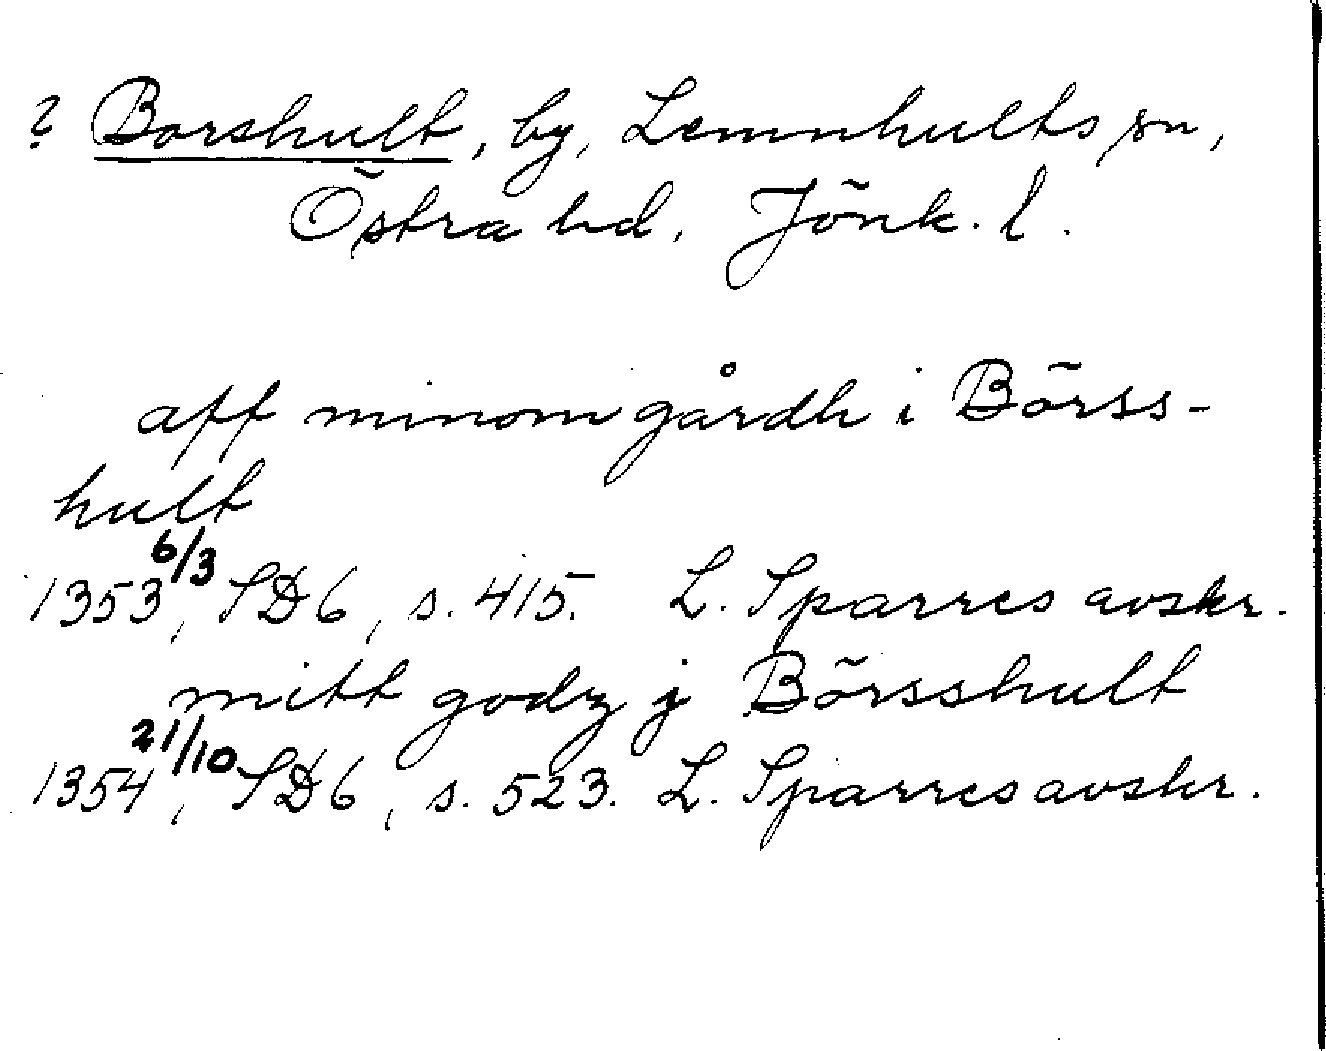 ? Borshult, by, Lemnhults sn,
Östra hd, Jönk. l.
aff minom gårdh i Börss-
hult
1353 6/3, SD 6, s. 415. L. Sparres avskr.
mitt godz j Börsshult
1354 21/10, SD 6, s. 523. L. Sparres avskr.